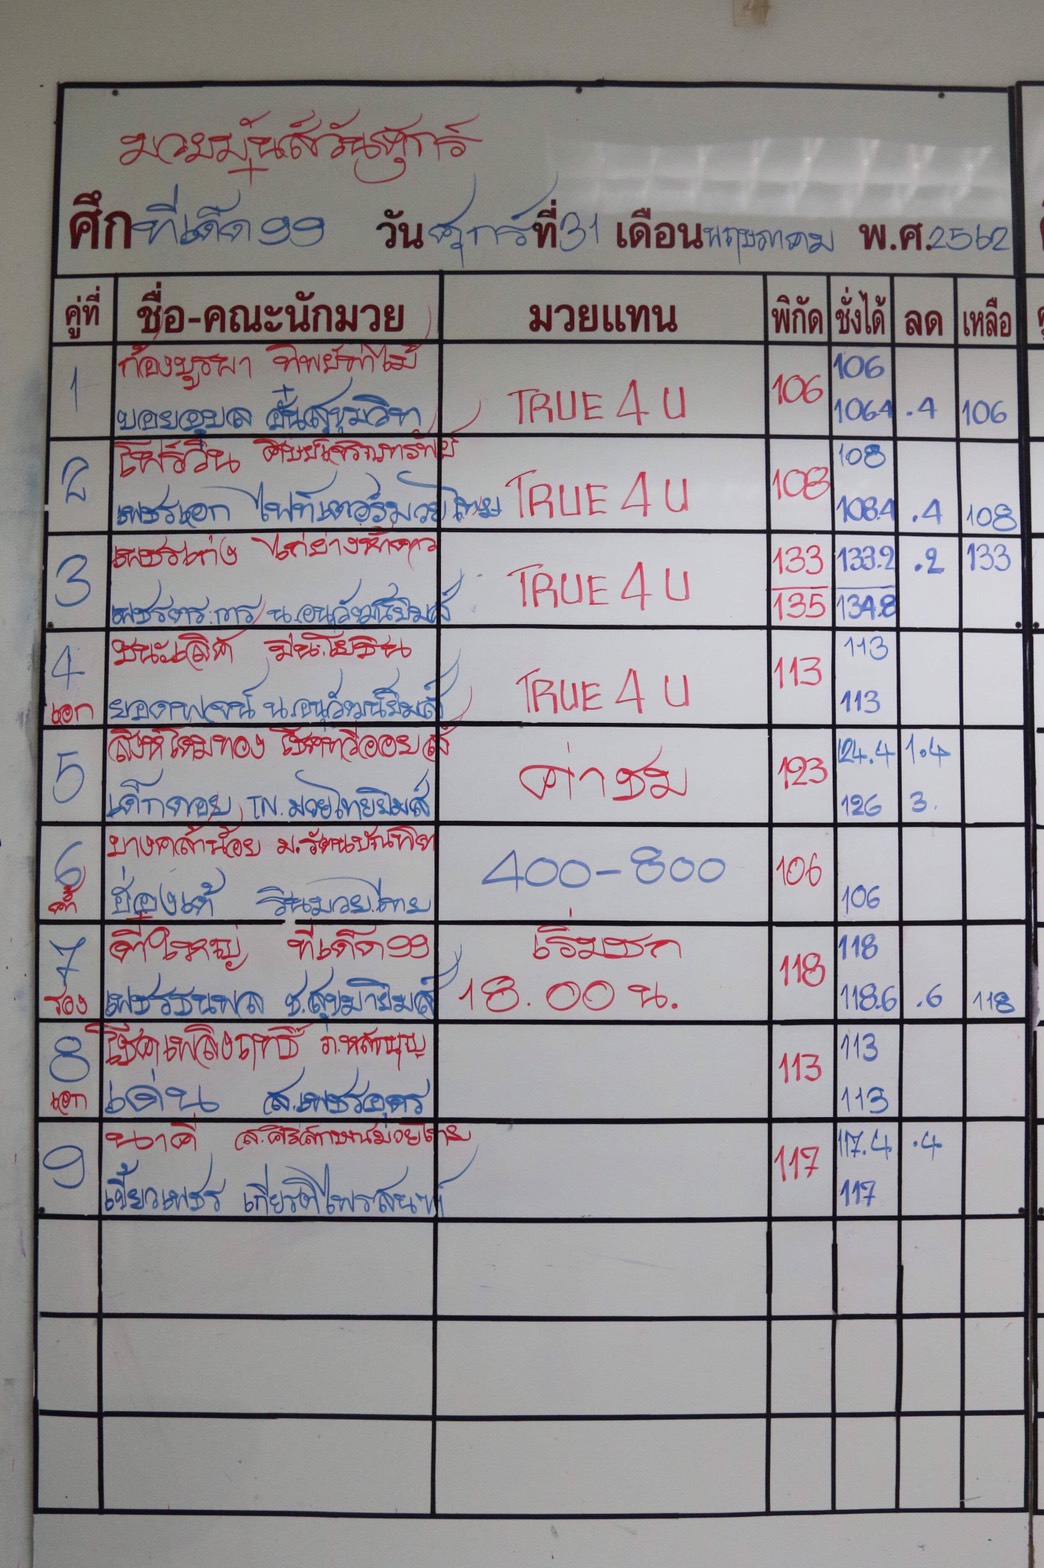 มวยมันส์วันศุกร์
ศึก ที่เด็ด99 วัน ศุกร์ ที่ 31 เดือน พฤษภาคม พ.ศ. 2562
คู่ที่ ชื่อ-คณะนักมวย มวยแทน พิกัด ชั่งได้ ลด เหลือ
1 ก้องบูรพา ทิพย์ท่าไม้ TRUE 4 U 106 106
บอยอุบล ตั๋นสุขุมวิท 106.4 .4 106
2 TRUE 4 U 108 108
เพชรเอก 108.4 .4 108
3 เพชรเก่ง ไก่ย่างห้าดาว TRUE 4 U 133 133.2 .2 133
น.อนุวัฒน์ยิมส์ 135 134.8
4 ชนะเลิศ มีน.โยธิน TRUE 4 U 113 113
เอก น.อนุวัฒน์ยิมส์ 113
5 สิงห์โดมทอง ค่าชม 123 124.4 1.4
เด็กดอย T.N.มวยไทยยิมส์ 126 3.
6 บางคล้าน้อย ม.รัตนบัณฑิต 400-800 106
ช่องเต้ วินมวยไทย 106
7 ผีใหญ่ ที่เด็ด99 เริ่มชก 118 118
รอง เพชรธนพล ช.สุขมายิมส์ 18.00 น. 118.6 .6 118
8 113 113
เอก เด่น ส.เพชรอุดร 113
9 นาคี 117 117.4 .4
เขี้ยวเพชร 117